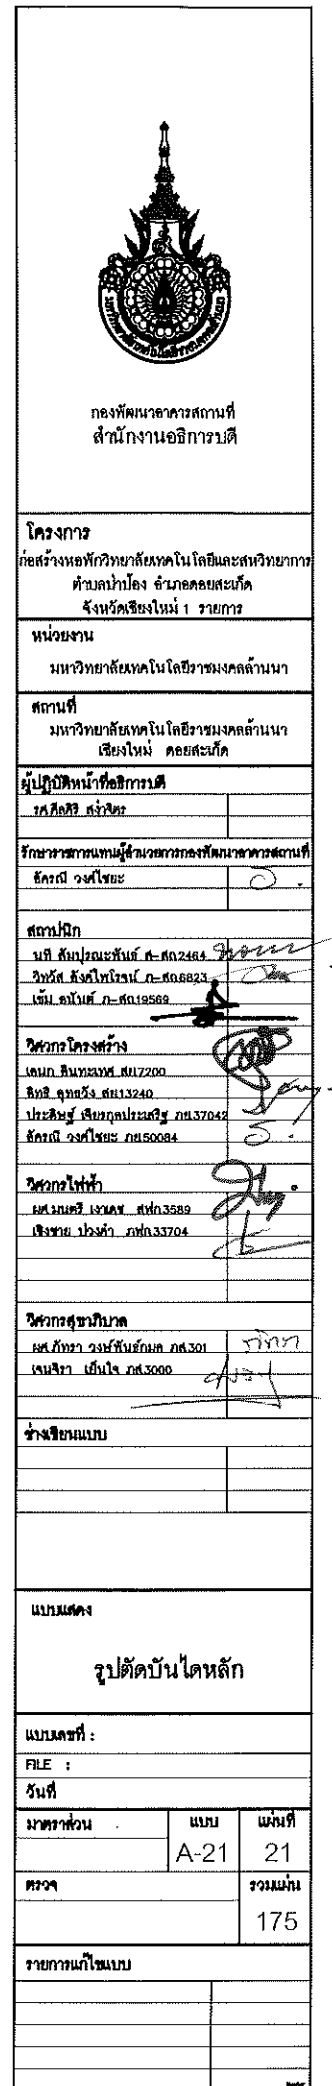 กองพัฒนาอาคารสถานที่
สำนักงานอธิการบดี
โครงการ
ก่อสร้างหอพักวิทยาลัยเทคโนโลยีและสหวิทยาการ
ตำบลป่าป้อง อำเภอดอยสะเก็ด
จังหวัดเชียงใหม่ 1 รายการ
หน่วยงาน
มหาวิทยาลัยเทคโนโลยีราชมงคลล้านนา
สถานที่
มหาวิทยาลัยเทคโนโลยีราชมงคลล้านนา
เชียงใหม่ ดอยสะเก็ด
ผู้ปฏิบัติหน้าที่อธิการบดี
รศ.ศีลศิริ สง่าจิตร
รักษาราชการแทนผู้อำนวยการกองพัฒนาอาคารสถานที่
อัครณี วงศ์ไชยะ
สถาปนิก
นที สัมปุรณะพันธ์ ส-สถ2464
วิทวัส สิงศ์ไพโรจน์ ภ-สถ6823
เข้ม อนันต์ ภ-สถ19569
วิศวกรโครงสร้าง
เอนก สินทะเทศ สย7200
สิทธิ อุทธวัง สย13240
ประดิษฐ์ เจียรกุลประเสริฐ ภย37042
อัครณี วงศ์ไชยะ ภย50084
วิศวกรไฟฟ้า
ผศ.มนตรี เงาเดช สฟก3589
เชิงชาย ปวงคำ ภฟก33704
วิศวกรสุขาภิบาล
ผศ.ภัทรา วงษ์พันธ์กมล ภส.301
เจนจิรา เย็นใจ ภส.3000
ช่างเขียนแบบ
แบบแสดง
รูปตัดบันไดหลัก
แบบเลขที่ :
FILE :
วันที่
มาตราส่วน แบบ แผ่นที่
A-21 21
ตรวจ รวมแผ่น
175
รายการแก้ไขแบบ